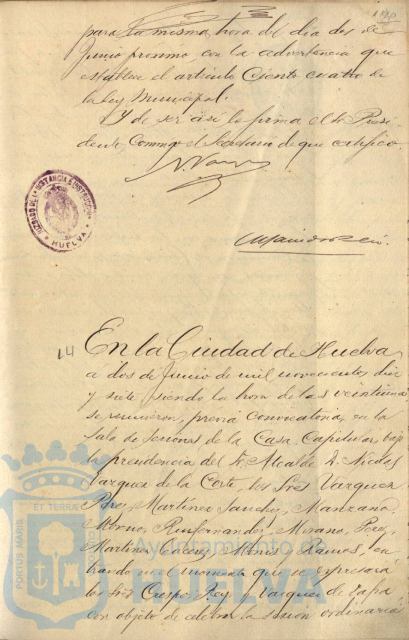 para la misma hora del dia dos de
Junio proximo, con la advertencia que
establece el artículo Ciento cuatro de
la ley Municipal.
Y de ser asi lo firma el Sr. Presi-
dente, conmigo el Secretario de que certifico.
JUZGADO DE 1ª INSTANCIA E INSTRUCCION
HUELVA
14 En la Ciudad de Huelva
a dos de Junio de mil novecientos diez
y siete siendo la hora de las veintiuna
se reunieron, previa convocatoria, en la
Sala de Sesiones de la Casa Capitular, bajo
la presidencia del Sr. Alcalde D. Nicolas
Vazquez de la Corte, los Sres Vazquez
Perez, Martinez Sanchez, Manzano,
Moreno, Morano, Perez,
Martinez, Ramos, en
trando en el momento que se expresará
los Sres Crespo Rey y Vazquez de Zafra
con objeto de celebrar la sesion ordinaria
PORTUS MARIS ET TERRAE
Ayuntamiento de
HUELVA